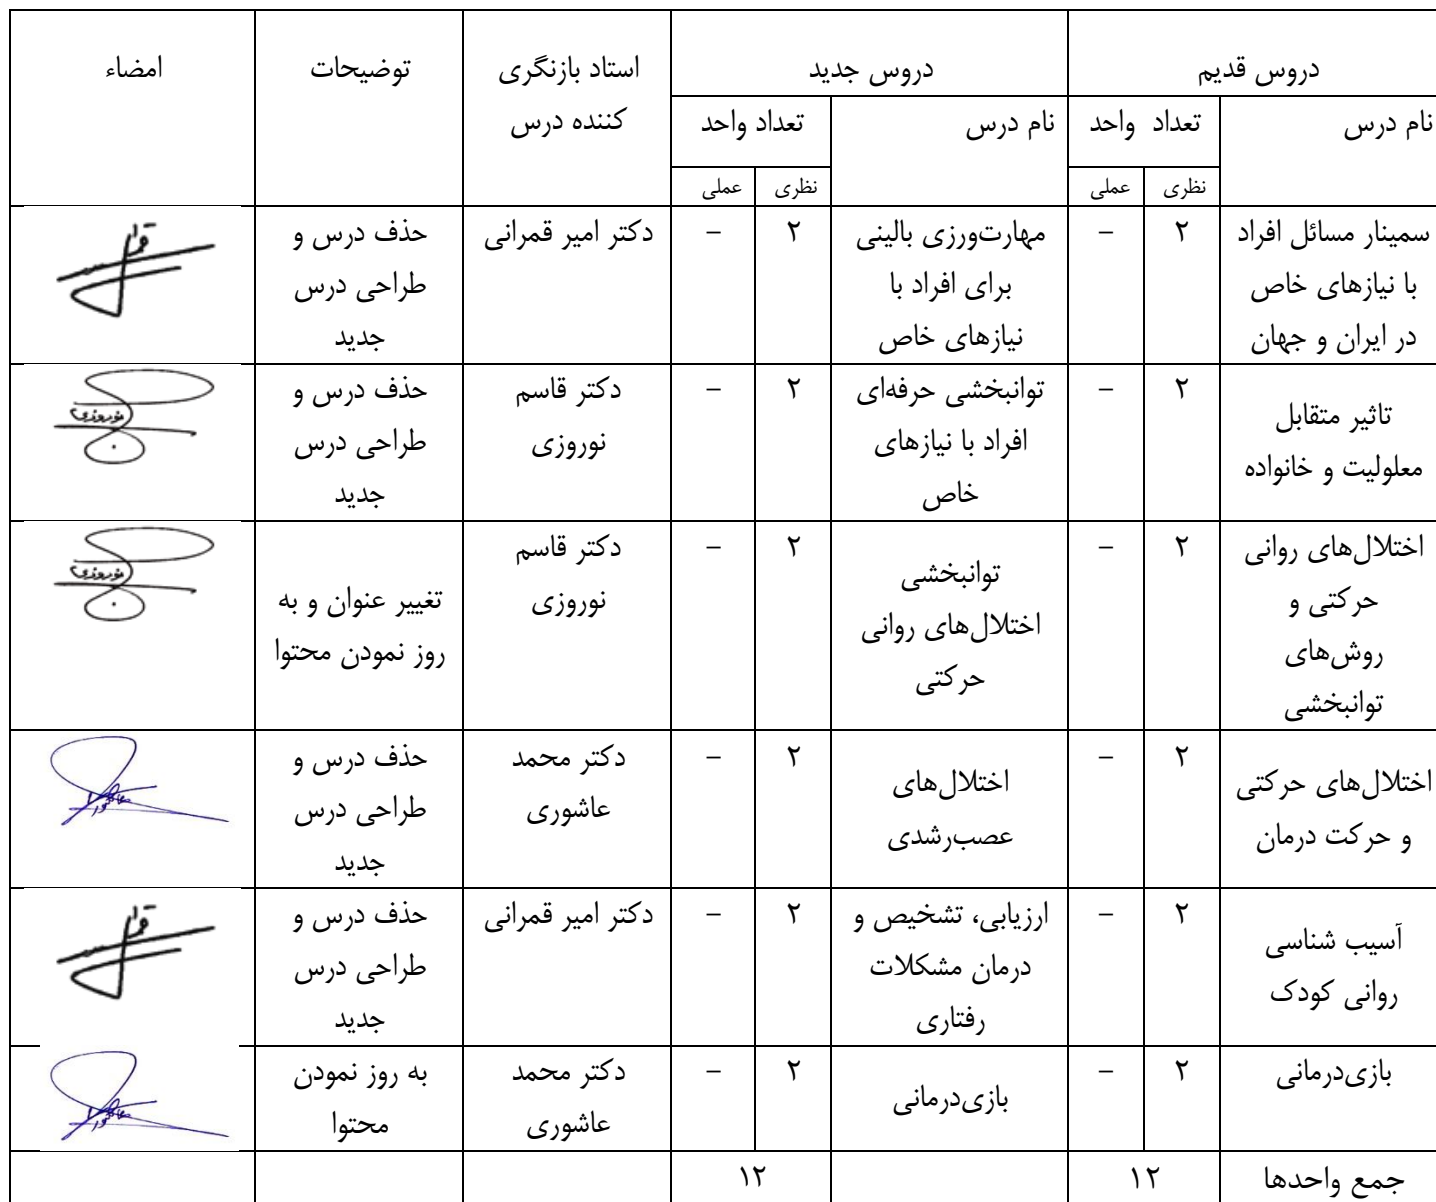 دروس قدیم
دروس جدید
استاد بازنگری
کننده درس
توضیحات
امضاء
نام درس
تعداد واحد
نام درس
تعداد واحد
نظری
عملی
نظری
عملی
سمینار مسائل افراد
با نیازهای خاص
در ایران و جهان
۲
–
مهارت‌ورزی بالینی
برای افراد با
نیازهای خاص
۲
–
دکتر امیر قمرانی
حذف درس و
طراحی درس
جدید
تاثیر متقابل
معلولیت و خانواده
۲
–
توانبخشی حرفه‌ای
افراد با نیازهای
خاص
۲
–
دکتر قاسم
نوروزی
حذف درس و
طراحی درس
جدید
نوروزی
اختلال‌های روانی
حرکتی و
روش‌های
توانبخشی
۲
–
توانبخشی
اختلال‌های روانی
حرکتی
۲
–
دکتر قاسم
نوروزی
تغییر عنوان و به
روز نمودن محتوا
نوروزی
اختلال‌های حرکتی
و حرکت درمان
۲
–
اختلال‌های
عصب‌رشدی
۲
–
دکتر محمد
عاشوری
حذف درس و
طراحی درس
جدید
آسیب شناسی
روانی کودک
۲
–
ارزیابی، تشخیص و
درمان مشکلات
رفتاری
۲
–
دکتر امیر قمرانی
حذف درس و
طراحی درس
جدید
بازی‌درمانی
۲
–
بازی‌درمانی
۲
–
دکتر محمد
عاشوری
به روز نمودن
محتوا
جمع واحدها
۱۲
۱۲